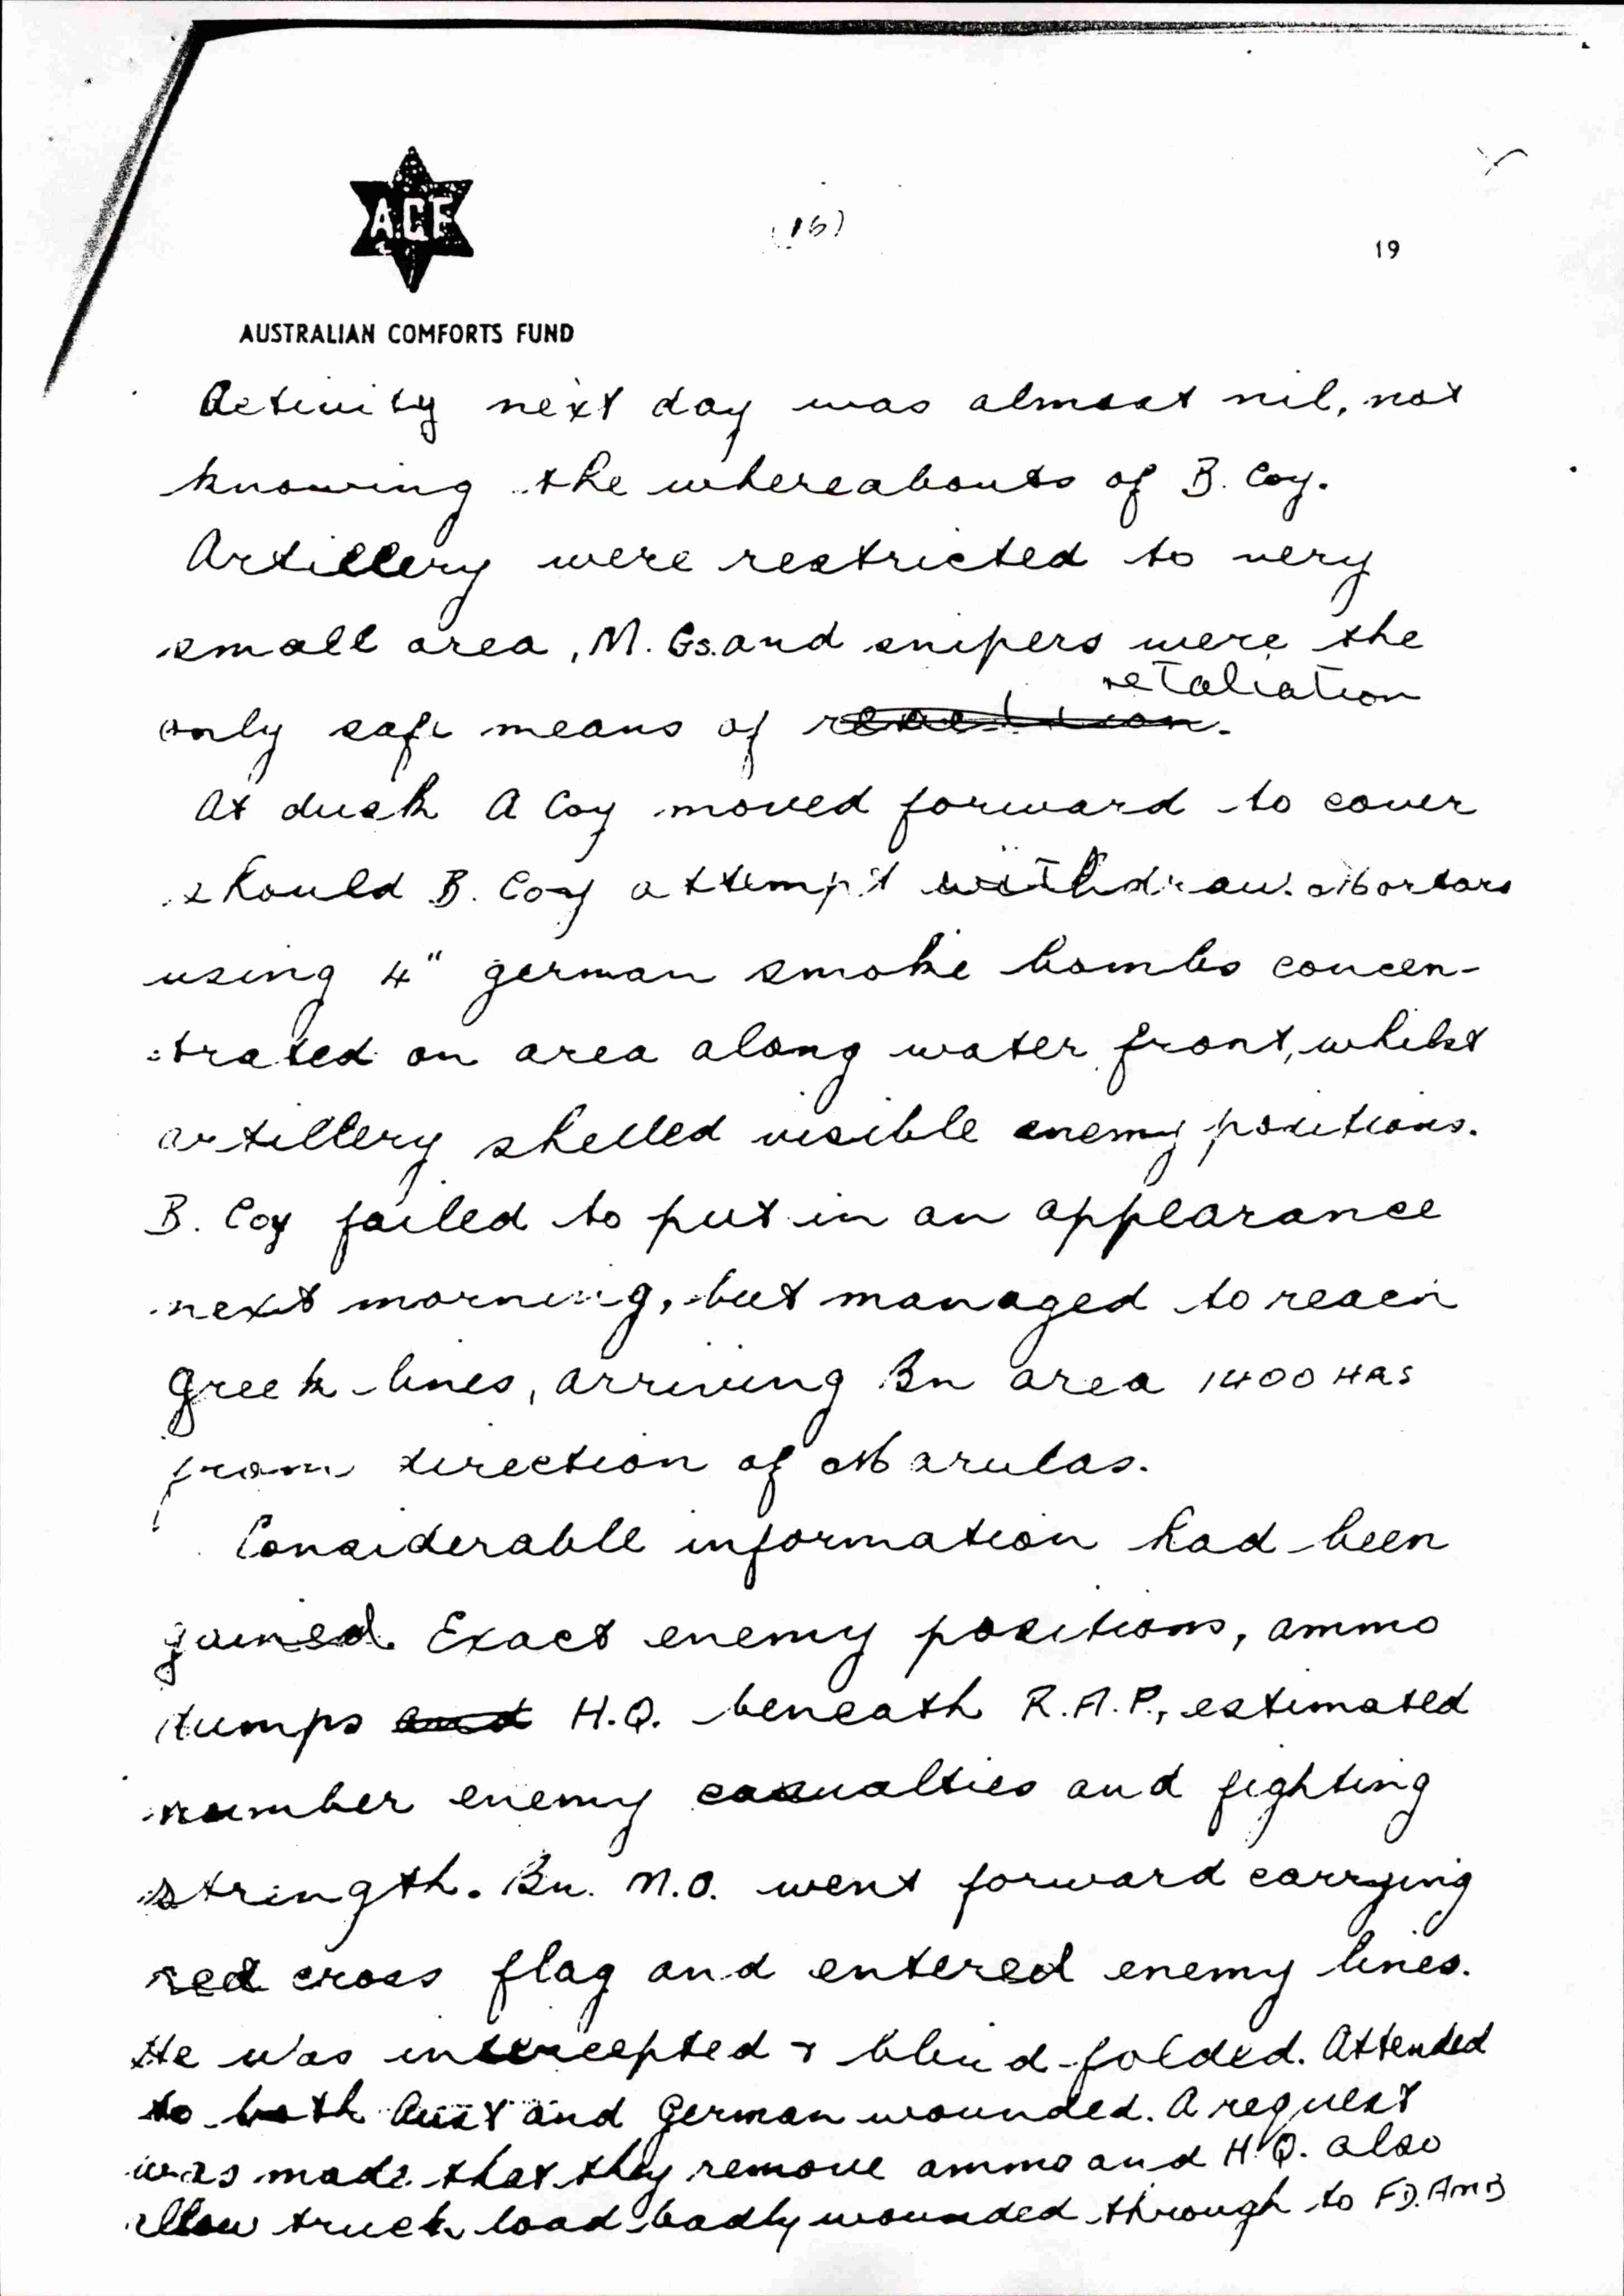 A.C.F
(16)
19
AUSTRALIAN COMFORTS FUND
Activity next day was almost nil, not
knowing the whereabouts of B. Coy.
Artillery were restricted to very
small area, M. Gs. and snipers were the
retaliation
only safe means of
At dusk A Coy moved forward to cover
should B. Coy attempt withdraw. Mortars
using 4" german smoke bombs concen-
-trated on area along water front, whilst
artillery shelled visible enemy positions.
B. Coy failed to put in an appearance
next morning, but managed to reach
Greek lines, arriving Bn area 1400 HRS
from direction of Marulas.
Considerable information had been
gained. Exact enemy positions, ammo
dumps and H.Q. beneath R.A.P., estimated
number enemy casualties and fighting
strength. Bn. M.O. went forward carrying
red cross flag and entered enemy lines.
He was intercepted & blind-folded. Attended
to both Aust and German wounded. A request
was made that they remove ammo and H.Q. also
allow truck load badly wounded through to FD. AMB